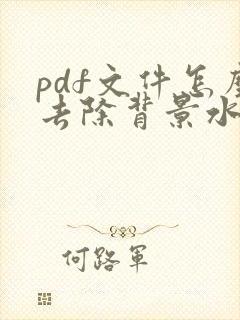 pdf文件怎麼
去除背景水
何路軍